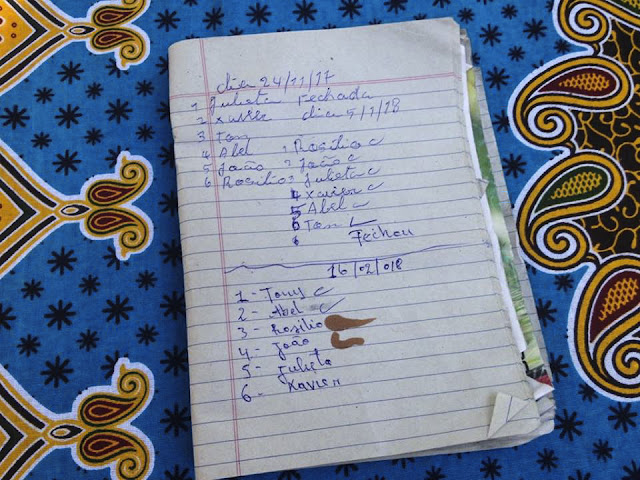 dia 24/11/17
1 Julieta Fechada
2 Xavier dia 5/1/18
3 Tony
4 Abel 1 Rosilio c
5 João 2 João c
6 Rosilio 3 Julieta c
4 Xavier c
5 Abel c
6 Tony
Fechou
16/02/018
1- Tony c
2- Abel c
3- Rosilio
4- João
5- Julieta
6- Xavier